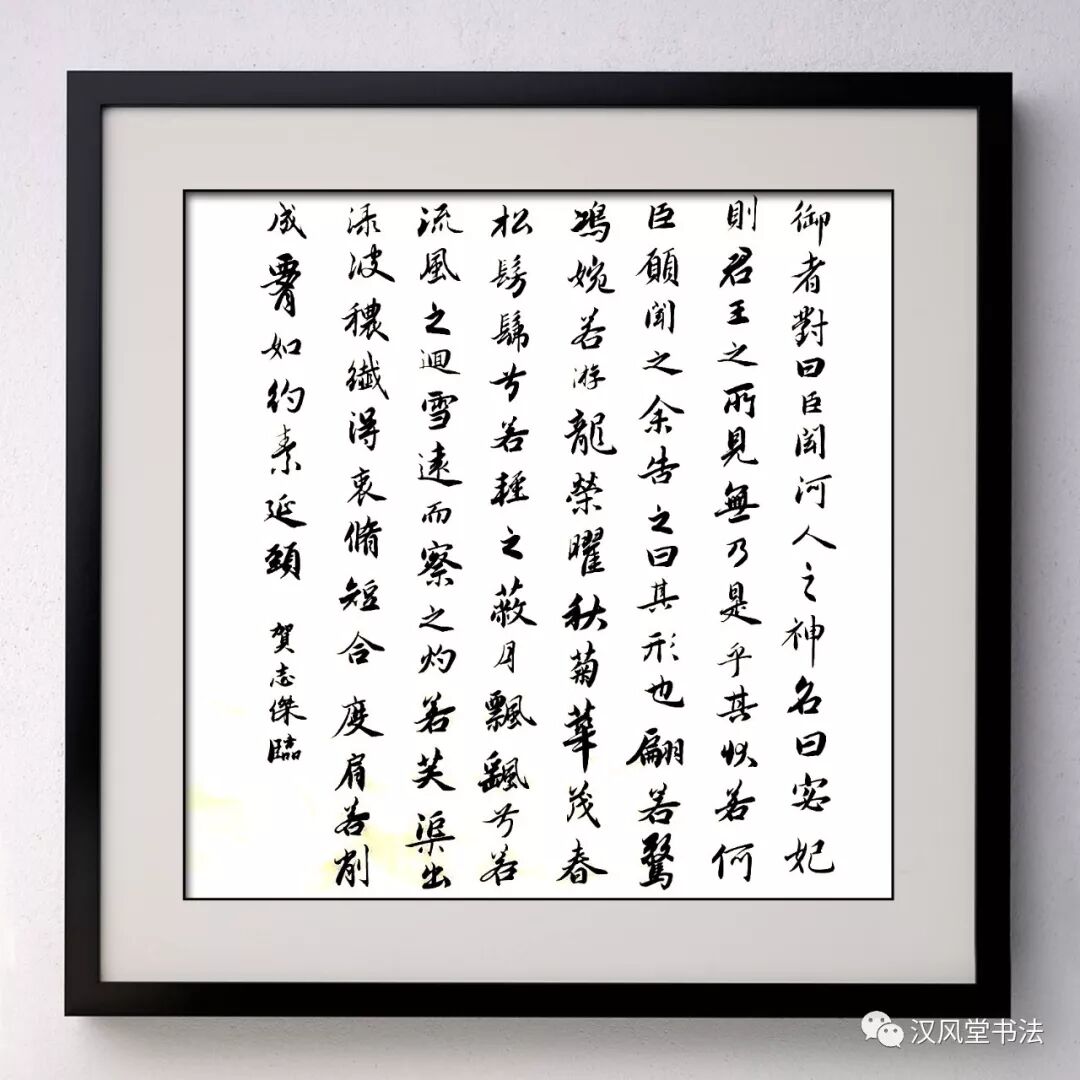 御者對曰臣聞河人之神名曰宓妃
則君王之所見無乃是乎其狀若何
臣願聞之余告之曰其形也翩若驚
鴻婉若游龍榮曜秋菊華茂春
松髣髴兮若輕之蔽月飄颻兮若
流風之迴雪遠而察之灼若芙渠出
渌波穠纖得衷脩短合度肩若削
成䙳如約素延頸
賀志傑臨
汉风堂书法